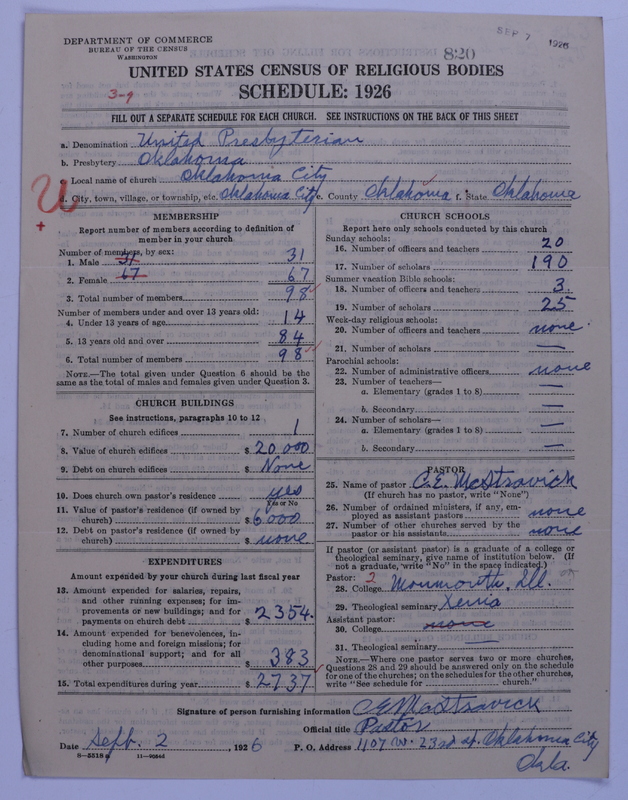 DEPARTMENT OF COMMERCE
BUREAU OF THE CENSUS
WASHINGTON
SEP 7 1926
820
UNITED STATES CENSUS OF RELIGIOUS BODIES
3-9
SCHEDULE: 1926
FILL OUT A SEPARATE SCHEDULE FOR EACH CHURCH. SEE INSTRUCTIONS ON THE BACK OF THIS SHEET
a. Denomination United Presbyterian
b. Presbytery Oklahoma
c. Local name of church Oklahoma City
d. City, town, village, or township, etc. Oklahoma City e. County Oklahoma f. State Oklahoma
MEMBERSHIP
Report number of members according to definition of
member in your church
Number of members, by sex:
1. Male 31 31
2. Female 67 67
3. Total number of members 98
Number of members under and over 13 years old:
4. Under 13 years of age 14
5. 13 years old and over 84
6. Total number of members 98
NOTE.—The total given under Question 6 should be the
same as the total of males and females given under Question 3.
CHURCH BUILDINGS
See instructions, paragraphs 10 to 12
7. Number of church edifices 1
8. Value of church edifices $ 20,000
9. Debt on church edifices $ None
10. Does church own pastor's residence yes
Yes or No
11. Value of pastor's residence (if owned by
church) $ 6000
12. Debt on pastor's residence (if owned by
church) $ none
EXPENDITURES
Amount expended by your church during last fiscal year
13. Amount expended for salaries, repairs,
and other running expenses; for im-
provements or new buildings; and for
payments on church debt $ 2354.
14. Amount expended for benevolences, in-
cluding home and foreign missions; for
denominational support; and for all
other purposes $ 383
15. Total expenditures during year $ 2737
CHURCH SCHOOLS
Report here only schools conducted by this church
Sunday schools:
16. Number of officers and teachers 20
17. Number of scholars 190
Summer vacation Bible schools:
18. Number of officers and teachers 3
19. Number of scholars 25
Week-day religious schools:
20. Number of officers and teachers none.
21. Number of scholars —
Parochial schools:
22. Number of administrative officers none
23. Number of teachers—
a. Elementary (grades 1 to 8) —
b. Secondary —
24. Number of scholars—
a. Elementary (grades 1 to 8) —
b. Secondary —
PASTOR
25. Name of pastor C. E. McStravick
(If church has no pastor, write "None")
26. Number of ordained ministers, if any, em-
ployed as assistant pastors none
27. Number of other churches served by the
pastor or his assistants none
If pastor (or assistant pastor) is a graduate of a college or
theological seminary, give name of institution below. (If
not a graduate, write "No" in the space indicated.)
Pastor: 2
28. College Monmouth, Ill.
29. Theological seminary Xenia
Assistant pastor:
30. College none
31. Theological seminary —
NOTE.—Where one pastor serves two or more churches,
Questions 28 and 29 should be answered only on the schedule
for one of the churches; on the schedules for the other churches,
write "See schedule for church."
Signature of person furnishing information C. E. McStravick
Official title Pastor
Date Sept. 2, 1926 P. O. Address 1107 W. 23rd st. Oklahoma City
Okla.
8—5518 11—40846